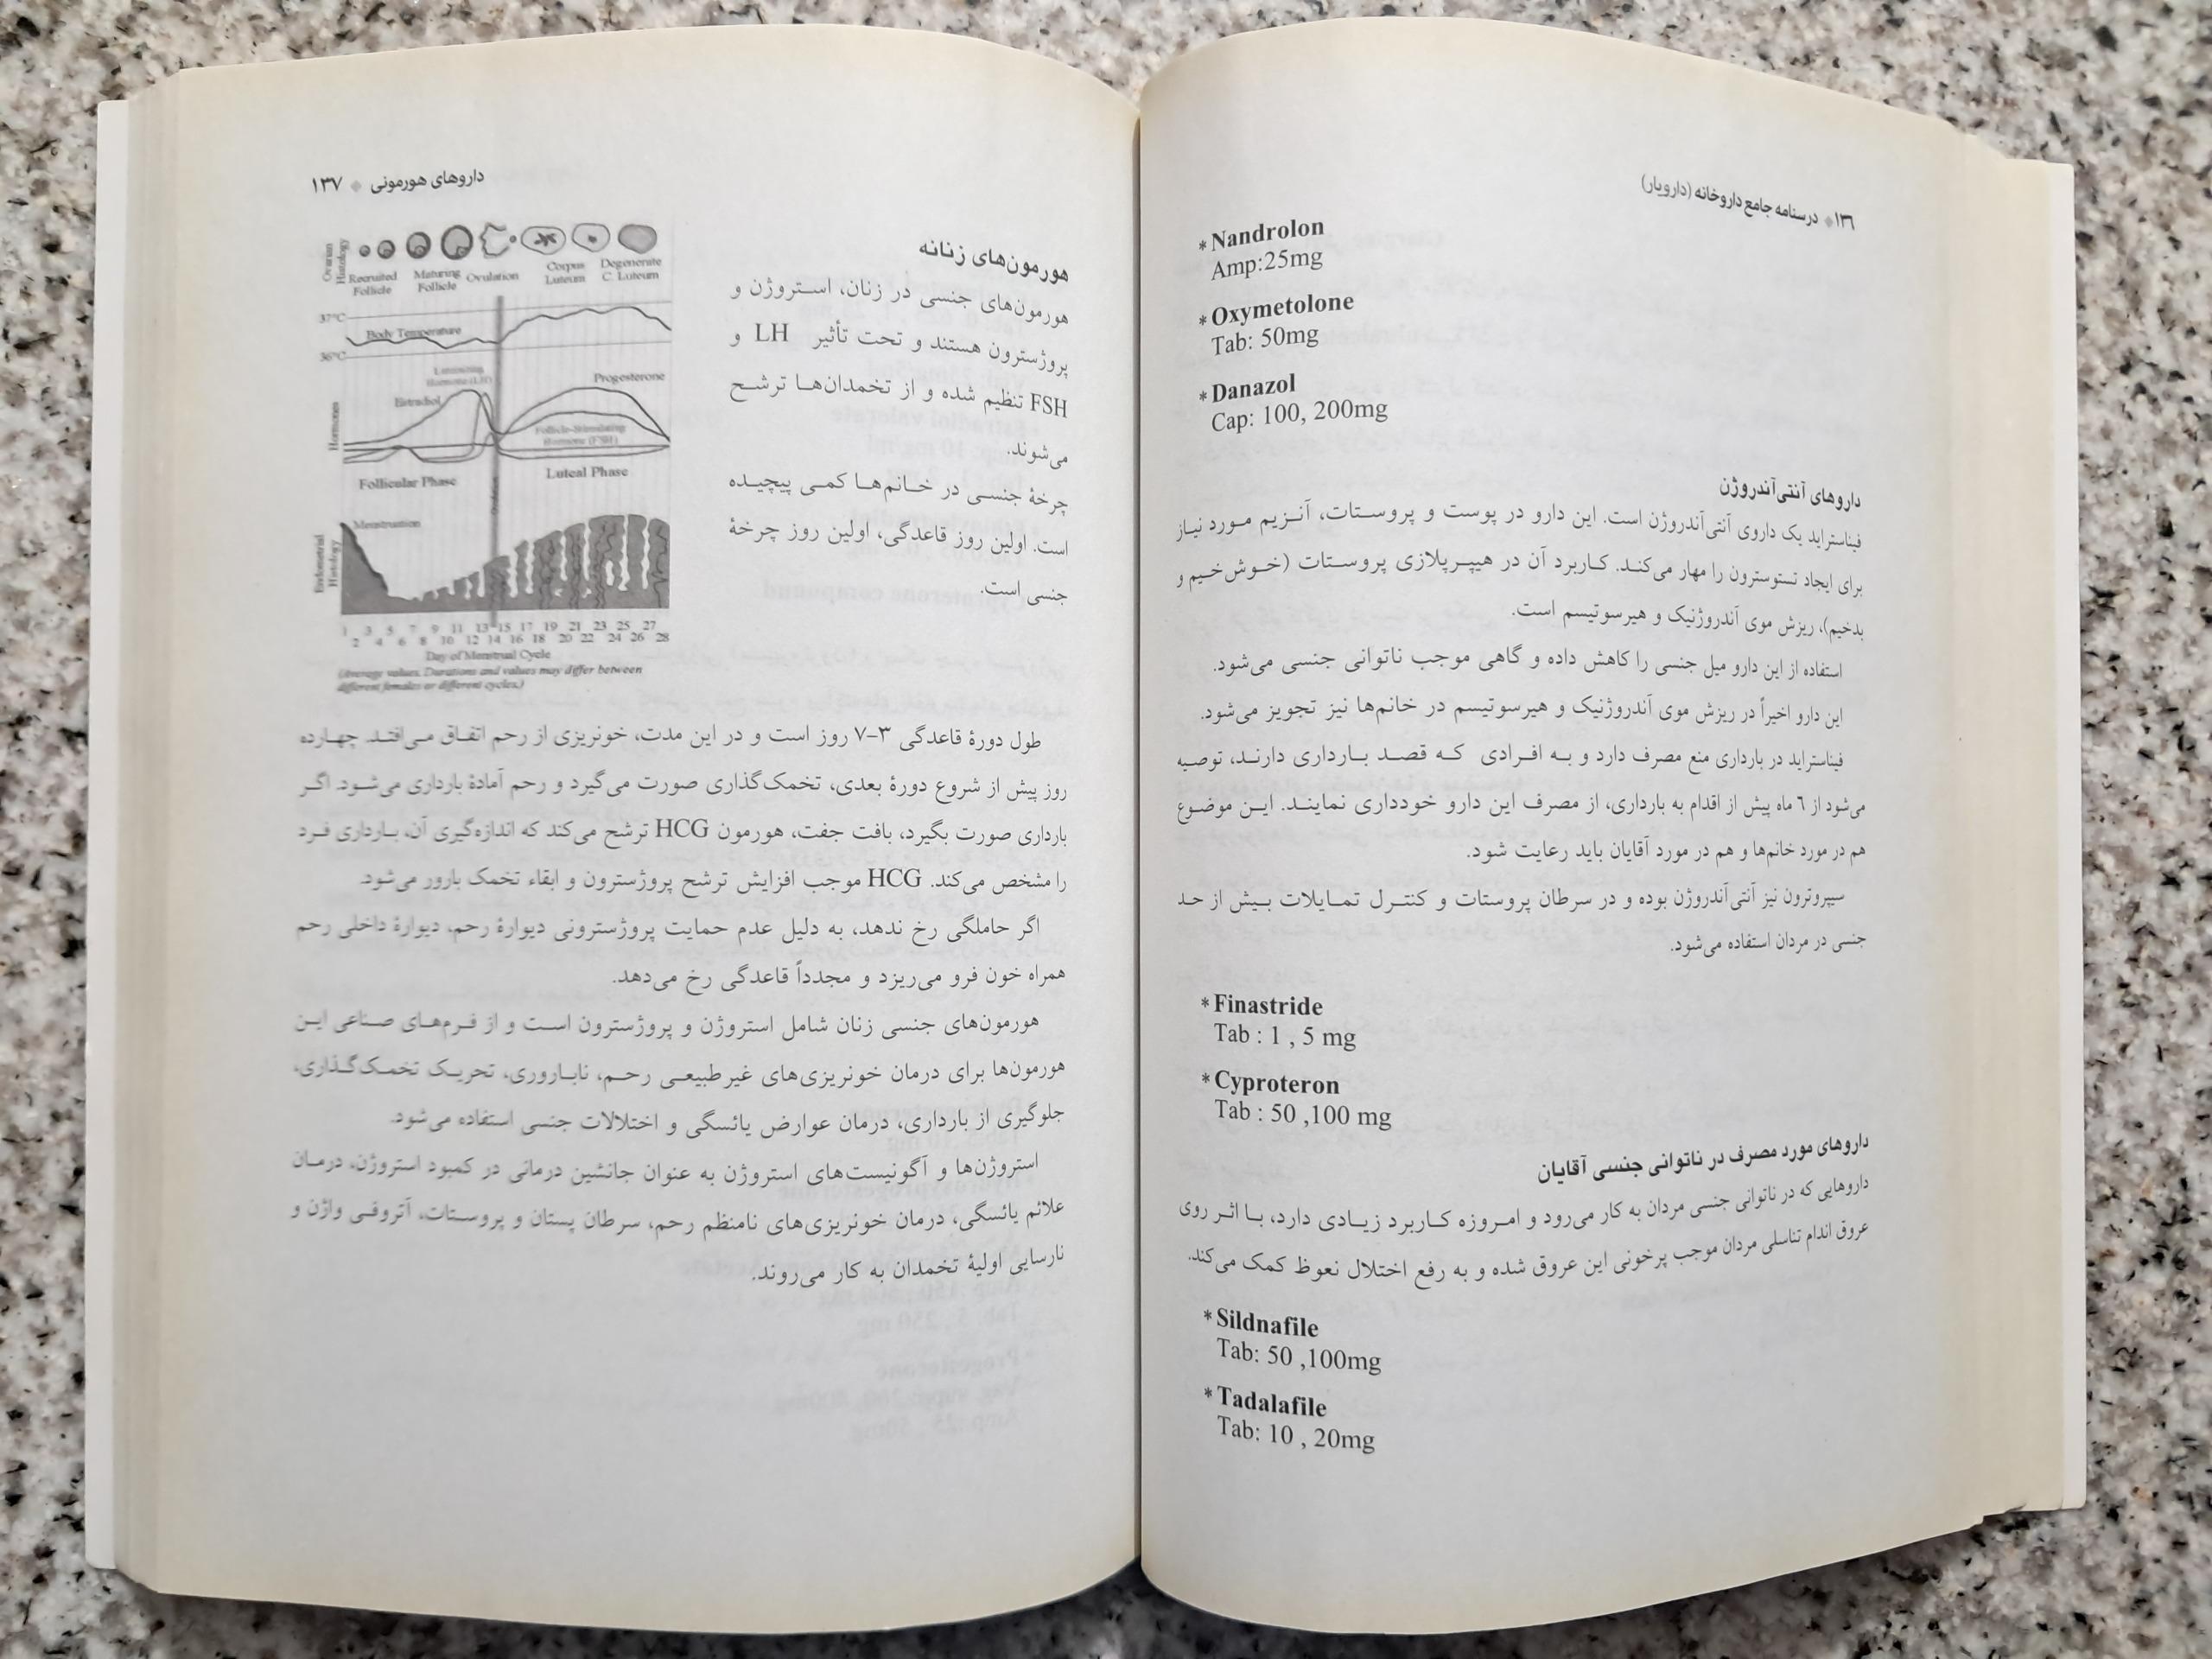 ۱۳۶ ◆ درسنامه جامع داروخانه (دارویار)
* Nandrolon
Amp:25mg
* Oxymetolone
Tab: 50mg
* Danazol
Cap: 100, 200mg
داروهای آنتی‌آندروژن
فیناستراید یک داروی آنتی‌آندروژن است. این دارو در پوست و پروستات، آنزیم مورد نیاز
برای ایجاد تستوسترون را مهار می‌کند. کاربرد آن در هیپرپلازی پروستات (خوش‌خیم و
بدخیم)، ریزش موی آندروژنیک و هیرسوتیسم است.
استفاده از این دارو میل جنسی را کاهش داده و گاهی موجب ناتوانی جنسی می‌شود.
این دارو اخیراً در ریزش موی آندروژنیک و هیرسوتیسم در خانم‌ها نیز تجویز می‌شود.
فیناستراید در بارداری منع مصرف دارد و به افرادی که قصد بارداری دارند، توصیه
می‌شود از ۶ ماه پیش از اقدام به بارداری، از مصرف این دارو خودداری نمایند. این موضوع
هم در مورد خانم‌ها و هم در مورد آقایان باید رعایت شود.
سیپروترون نیز آنتی‌آندروژن بوده و در سرطان پروستات و کنترل تمایلات بیش از حد
جنسی در مردان استفاده می‌شود.
* Finastride
Tab : 1 , 5 mg
* Cyproteron
Tab : 50 ,100 mg
داروهای مورد مصرف در ناتوانی جنسی آقایان
داروهایی که در ناتوانی جنسی مردان به کار می‌رود و امروزه کاربرد زیادی دارد، با اثر روی
عروق اندام تناسلی مردان موجب پرخونی این عروق شده و به رفع اختلال نعوظ کمک می‌کند.
* Sildnafile
Tab: 50 ,100mg
* Tadalafile
Tab: 10 , 20mg
داروهای هورمونی ◆ ۱۳۷
هورمون‌های زنانه
هورمون‌های جنسی در زنان، استروژن و
پروژسترون هستند و تحت تأثیر LH و
FSH تنظیم شده و از تخمدان‌ها ترشح
می‌شوند.
چرخهٔ جنسی در خانم‌ها کمی پیچیده
است. اولین روز قاعدگی، اولین روز چرخهٔ
جنسی است.
Ovarian Histology
Recruited Follicle
Maturing Follicle
Ovulation
Corpus Luteum
Degenerate C. Luteum
37°C
Body Temperature
36°C
Hormones
Luteinizing Hormone (LH)
Estradiol
Progesterone
Follicle-Stimulating Hormone (FSH)
Follicular Phase
Luteal Phase
Ovulation
Endometrial Histology
Menstruation
1 3 5 7 9 11 13 15 17 19 21 23 25 27
2 4 6 8 10 12 14 16 18 20 22 24 26 28
Day of Menstrual Cycle
(Average values. Durations and values may differ between
different females or different cycles.)
طول دورهٔ قاعدگی ۳-۷ روز است و در این مدت، خونریزی از رحم اتفاق می‌افتد. چهارده
روز پیش از شروع دورهٔ بعدی، تخمک‌گذاری صورت می‌گیرد و رحم آمادهٔ بارداری می‌شود. اگر
بارداری صورت بگیرد، بافت جفت، هورمون HCG ترشح می‌کند که اندازه‌گیری آن، بارداری فرد
را مشخص می‌کند. HCG موجب افزایش ترشح پروژسترون و ابقاء تخمک بارور می‌شود.
اگر حاملگی رخ ندهد، به دلیل عدم حمایت پروژسترونی دیوارهٔ رحم، دیوارهٔ داخلی رحم
همراه خون فرو می‌ریزد و مجدداً قاعدگی رخ می‌دهد.
هورمون‌های جنسی زنان شامل استروژن و پروژسترون است و از فرم‌های صناعی این
هورمون‌ها برای درمان خونریزی‌های غیرطبیعی رحم، ناباروری، تحریک تخمک‌گذاری،
جلوگیری از بارداری، درمان عوارض یائسگی و اختلالات جنسی استفاده می‌شود.
استروژن‌ها و آگونیست‌های استروژن به عنوان جانشین درمانی در کمبود استروژن، درمان
علائم یائسگی، درمان خونریزی‌های نامنظم رحم، سرطان پستان و پروستات، آتروفی واژن و
نارسایی اولیهٔ تخمدان به کار می‌روند.